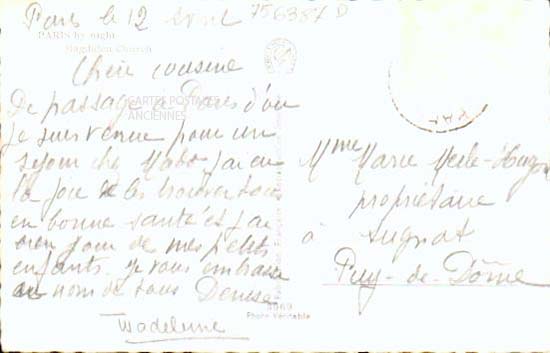 Paris le 12 Avril
756387 D
PARIS by night
Magdalen Church
Chère cousine
De passage à Paris d'où
je suis venue pour un
séjour chez Mado j'ai eu
la joie de les trouver tous
en bonne santé et j'ai
bien joui de mes petits
enfants. Je vous embrasse
au nom de tous Denise
Madeleine
CARTES POSTALES
ANCIENNES
3969
Photo Véritable
Mme Marie
propriétaire
à Sugnat
Puy-de-Dôme